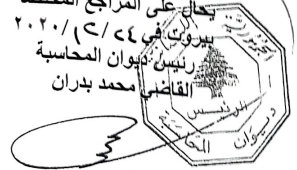 يحال على المراجع المختصة
بيروت في ٢٤/١٢/٢٠٢٠
رئيس ديوان المحاسبة
القاضي محمد بدران
الجمهورية
الرئيس
ديوان المحاسبة